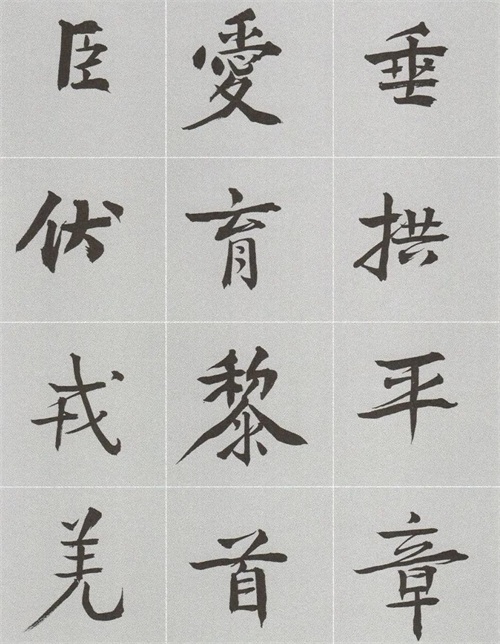 垂拱平章
愛育黎首
臣伏戎羌